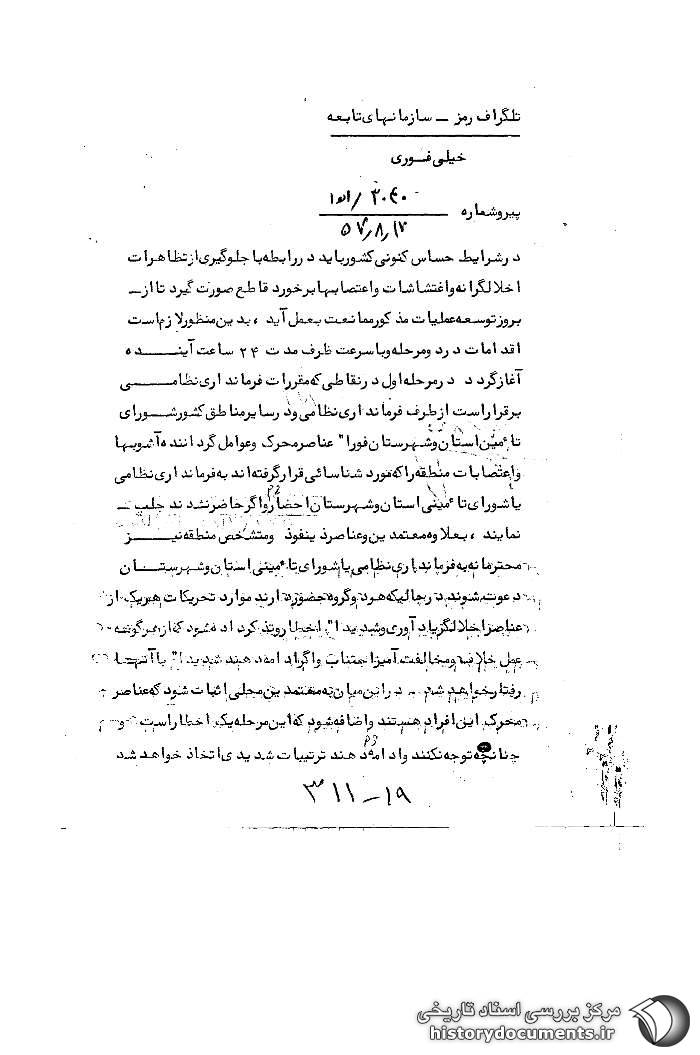 تلگراف رمز ـ سازمانهای تابعه
خیلی فوری
پیرو شماره ۳۰۴۰ /
۵۷٫۸٫۱۷
در شرایط حساس کنونی کشور باید در رابطه با جلوگیری از تظاهرات
اخلالگرانه و اغتشاشات و اعتصابها برخورد قاطع صورت گیرد تا از ـ
بروز توسعه عملیات مذکور ممانعت بعمل آید ، بدین منظور لازم است
اقدامات در دو مرحله و با سرعت ظرف مدت ۲۴ ساعت آینده
آغاز گردد در مرحله اول در نقاطی که مقررات فرمانداری نظامی
برقرار است از طرف فرمانداری نظامی و در سایر مناطق کشور شورای
تأمین استان و شهرستان فورا" عناصر محرک و عوامل گرداننده آشوبها
و اعتصابات منطقه را که مورد شناسائی قرار گرفته اند به فرمانداری نظامی
یا شورای تأمینی استان و شهرستان احضار و اگر حاضر نشدند جلب ـ
نمایند ، بعلاوه معتمدین و عناصر ذینفوذ و متشخص منطقه نیز
محترمانه به فرمانداری نظامی یا شورای تأمینی استان و شهرستان
دعوت شوند در حالیکه هر دو گروه حضور دارند موارد تحریکات هر یک از
عناصر اخلالگر یادآوری و شدیدا" اخطار و تذکر داده شود که از هرگونه
عمل خلاف و مخالفت آمیز اجتناب و اگر ادامه دهند شدیدا" با آنها
رفتار خواهد شد در این میان به معتمدین محلی اثبات شود که عناصر
محرک این افراد هستند و اضافه شود که این مرحله یک اخطار است و
چنانچه توجه نکنند و ادامه دهند ترتیبات شدیدی اتخاذ خواهد شد
۳۱۱ـ۱۹
مرکز بررسی اسناد تاریخی
historydocuments.ir